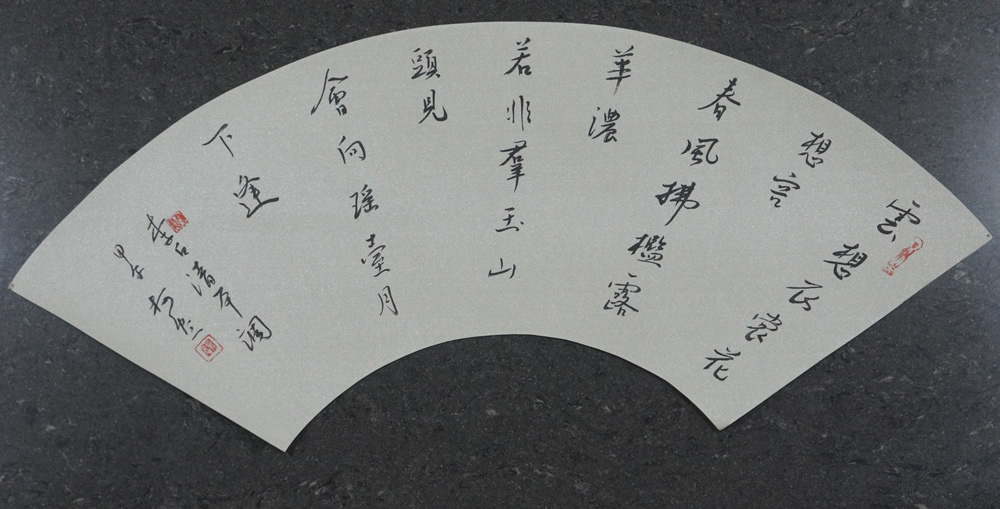 雲想衣裳花
想容
春風拂檻露
華濃
若非羣玉山
頭見
會向瑶臺月
下逢
李白清平調
甲午